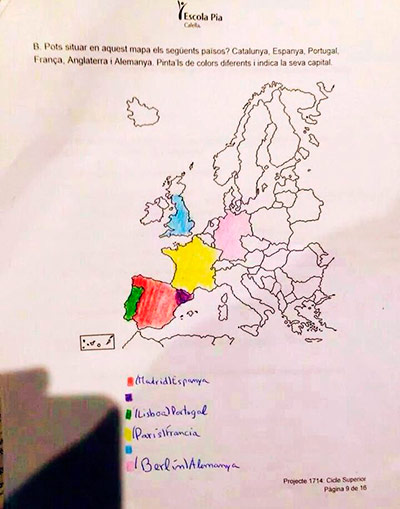 Escola Pia
Calella
B. Pots situar en aquest mapa els següents països? Catalunya, Espanya, Portugal,
França, Anglaterra i Alemanya. Pinta'ls de colors diferents i indica la seva capital.
(Madrid)Espanya
(Lisboa)Portugal
(París)Francia
(Berlín)Alemanya
Projecte 1714. Cicle Superior
Pàgina 9 de 16